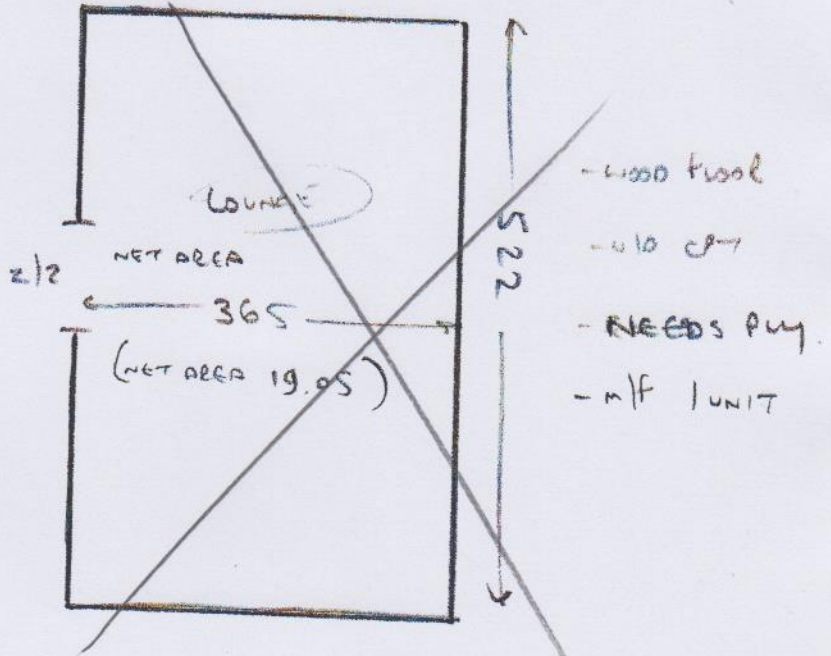 LOUNGE
NET AREA
z/z
365
(NET AREA 19.05)
522
- WOOD FLOOR
- u/o CPT
- NEEDS PLY.
- m/F 1 UNIT